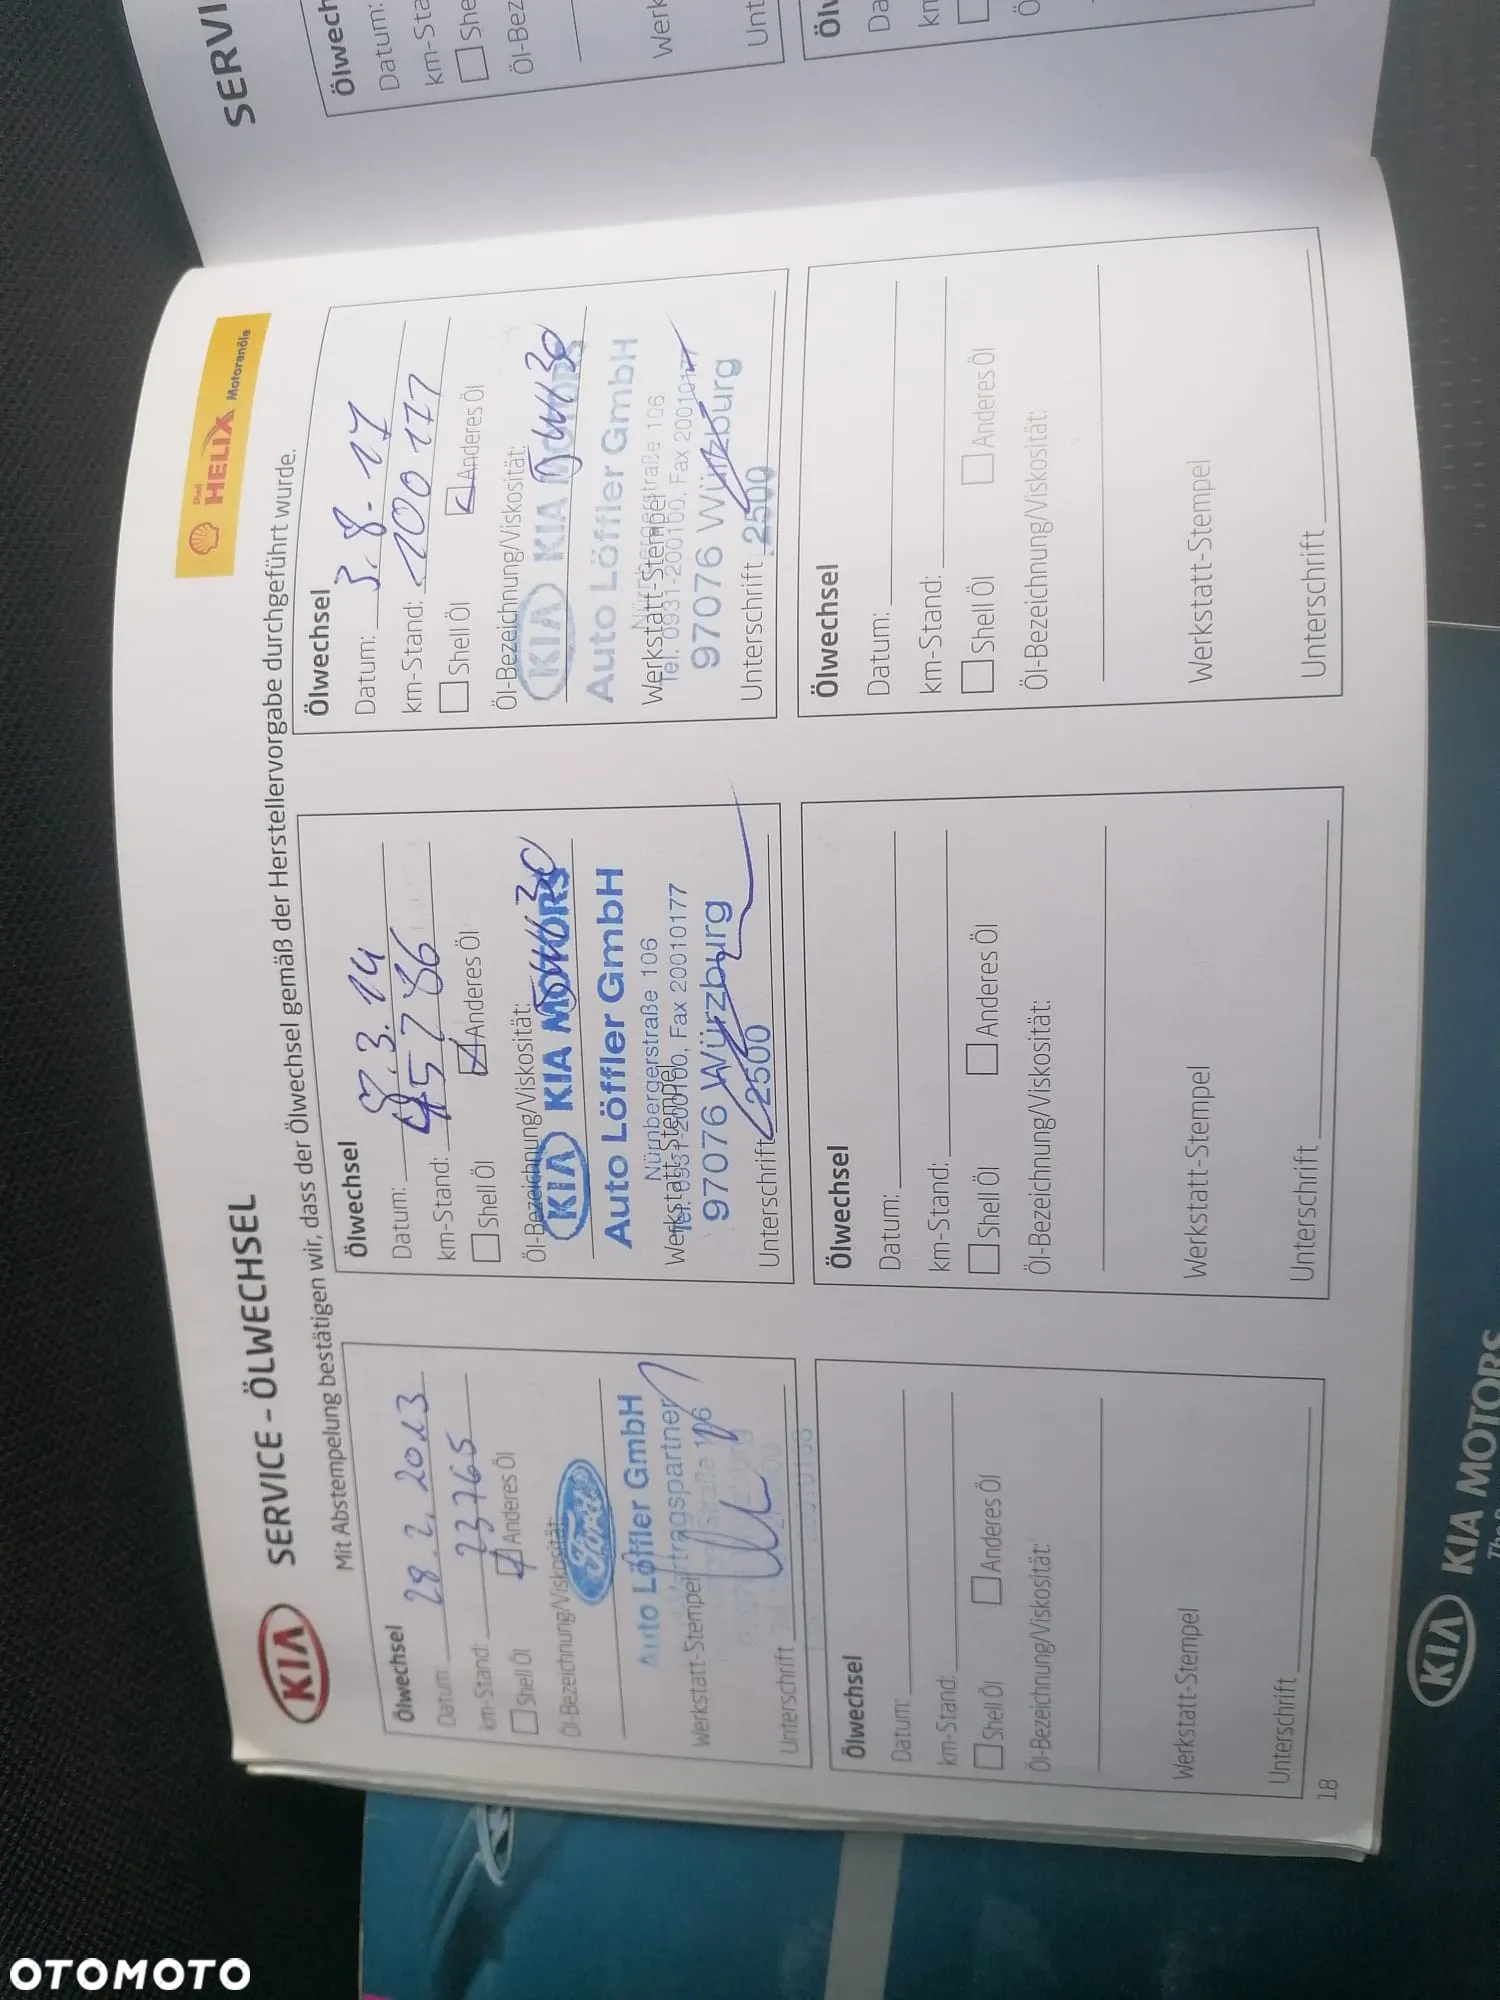 KIA SERVICE - ÖLWECHSEL
Shell
HELIX
Motorenöle
Mit Abstempelung bestätigen wir, dass der Ölwechsel gemäß der Herstellervorgabe durchgeführt wurde.
Ölwechsel
Datum: 28.2.2013
km-Stand: 23765
Shell Öl Anderes Öl
Öl-Bezeichnung/Viskosität:
Ford
Auto Löffler GmbH
Werkstatt-Stempel
Unterschrift
Ölwechsel
Datum: 3.14
km-Stand: 45786
Shell Öl Anderes Öl
Öl-Bezeichnung/Viskosität:
KIA KIA MOTORS
Auto Löffler GmbH
Nürnbergerstraße 106
Werkstatt-Stempel
Tel. 0931-200100, Fax 20010177
97076 Würzburg
Unterschrift 2500
Ölwechsel
Datum: 3.8.17
km-Stand: 100177
Shell Öl Anderes Öl
Öl-Bezeichnung/Viskosität:
KIA KIA MOTORS
Auto Löffler GmbH
Nürnbergerstraße 106
Werkstatt-Stempel
Tel. 0931-200100, Fax 20010177
97076 Würzburg
Unterschrift 2500
Ölwechsel
Datum:
km-Stand:
Shell Öl Anderes Öl
Öl-Bezeichnung/Viskosität:
Werkstatt-Stempel
Unterschrift
Ölwechsel
Datum:
km-Stand:
Shell Öl Anderes Öl
Öl-Bezeichnung/Viskosität:
Werkstatt-Stempel
Unterschrift
Ölwechsel
Datum:
km-Stand:
Shell Öl Anderes Öl
Öl-Bezeichnung/Viskosität:
Werkstatt-Stempel
Unterschrift
18
Datum:
KIA KIA MOTORS
OTOMOTO